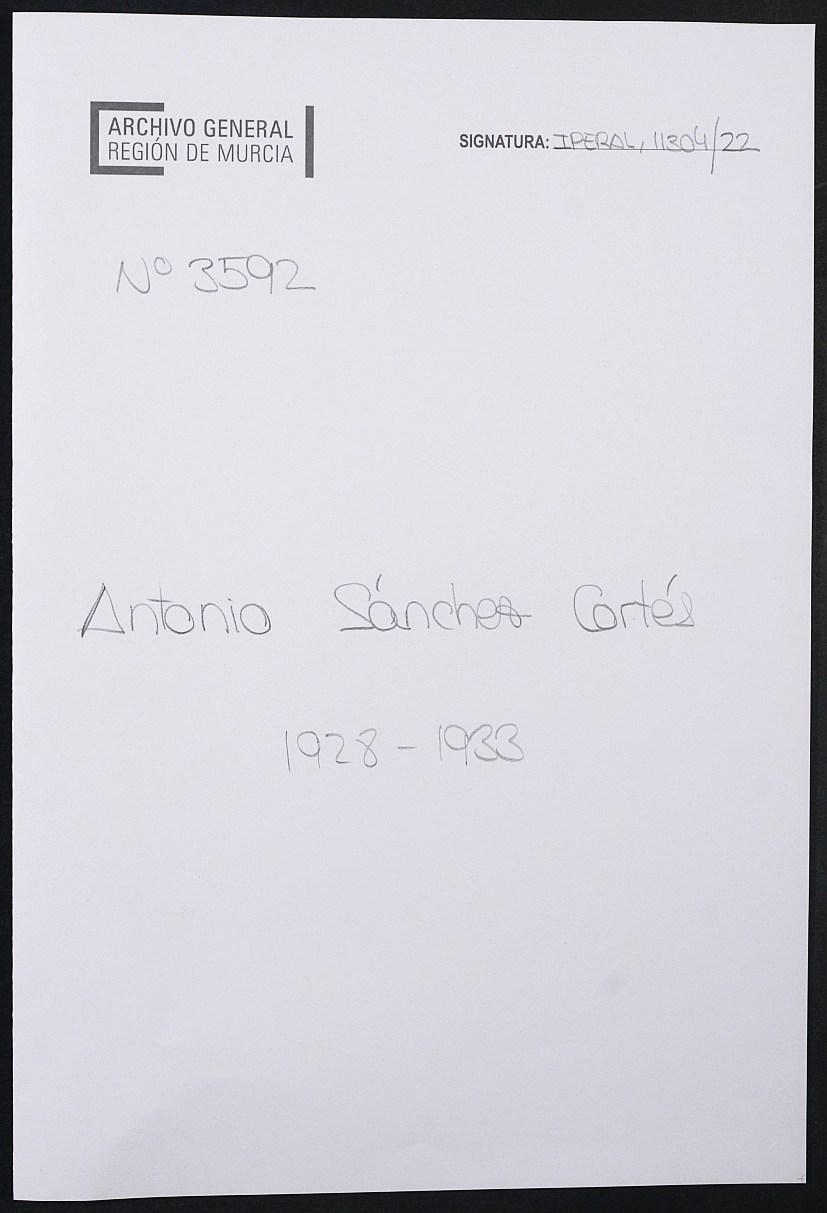 ARCHIVO GENERAL
REGIÓN DE MURCIA
SIGNATURA: IPERAL, 11304/22
Nº 3592
Antonio Sánchez Cortés
1928 - 1933